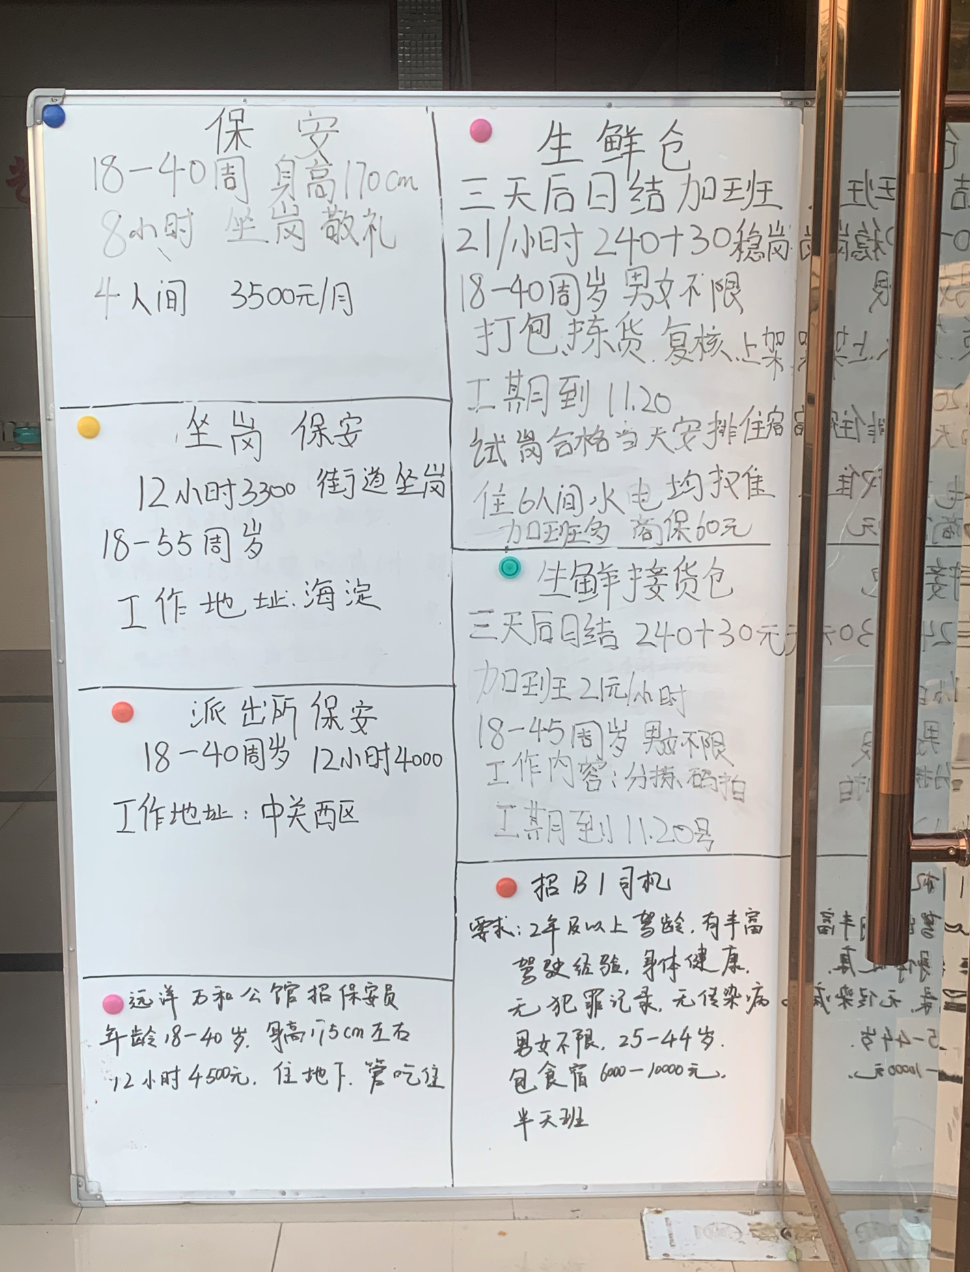 保 安
18-40周 身高170cm
8小时 坐岗 敬礼
4人间 3500元/月
坐岗 保安
12小时3300 街道坐岗
18-55周岁
工作地址.海淀
派出所保安
18-40周岁 12小时4000
工作地址:中关西区
远洋万和公馆招保安员
年龄18-40岁.身高175cm左右
12小时4500元.住地下.管吃住
生鲜仓
三天后日结 加班
21/小时 240+30稳岗
18-40周岁 男女不限
打包、拣货.复核.上架
工期到 11.20
试岗合格当天安排住宿
住6人间水电均
加班多 商保60元
生鲜接货仓
三天后日结 240+30元
加班21元/小时
18-45周岁 男女不限
工作内容:分拣.码拍
工期到11.20号
招B1司机
要求:2年及以上驾龄.有丰富
驾驶经验.身体健康.
无犯罪记录.无传染病.
男女不限.25-44岁.
包食宿6000-10000元.
半天班